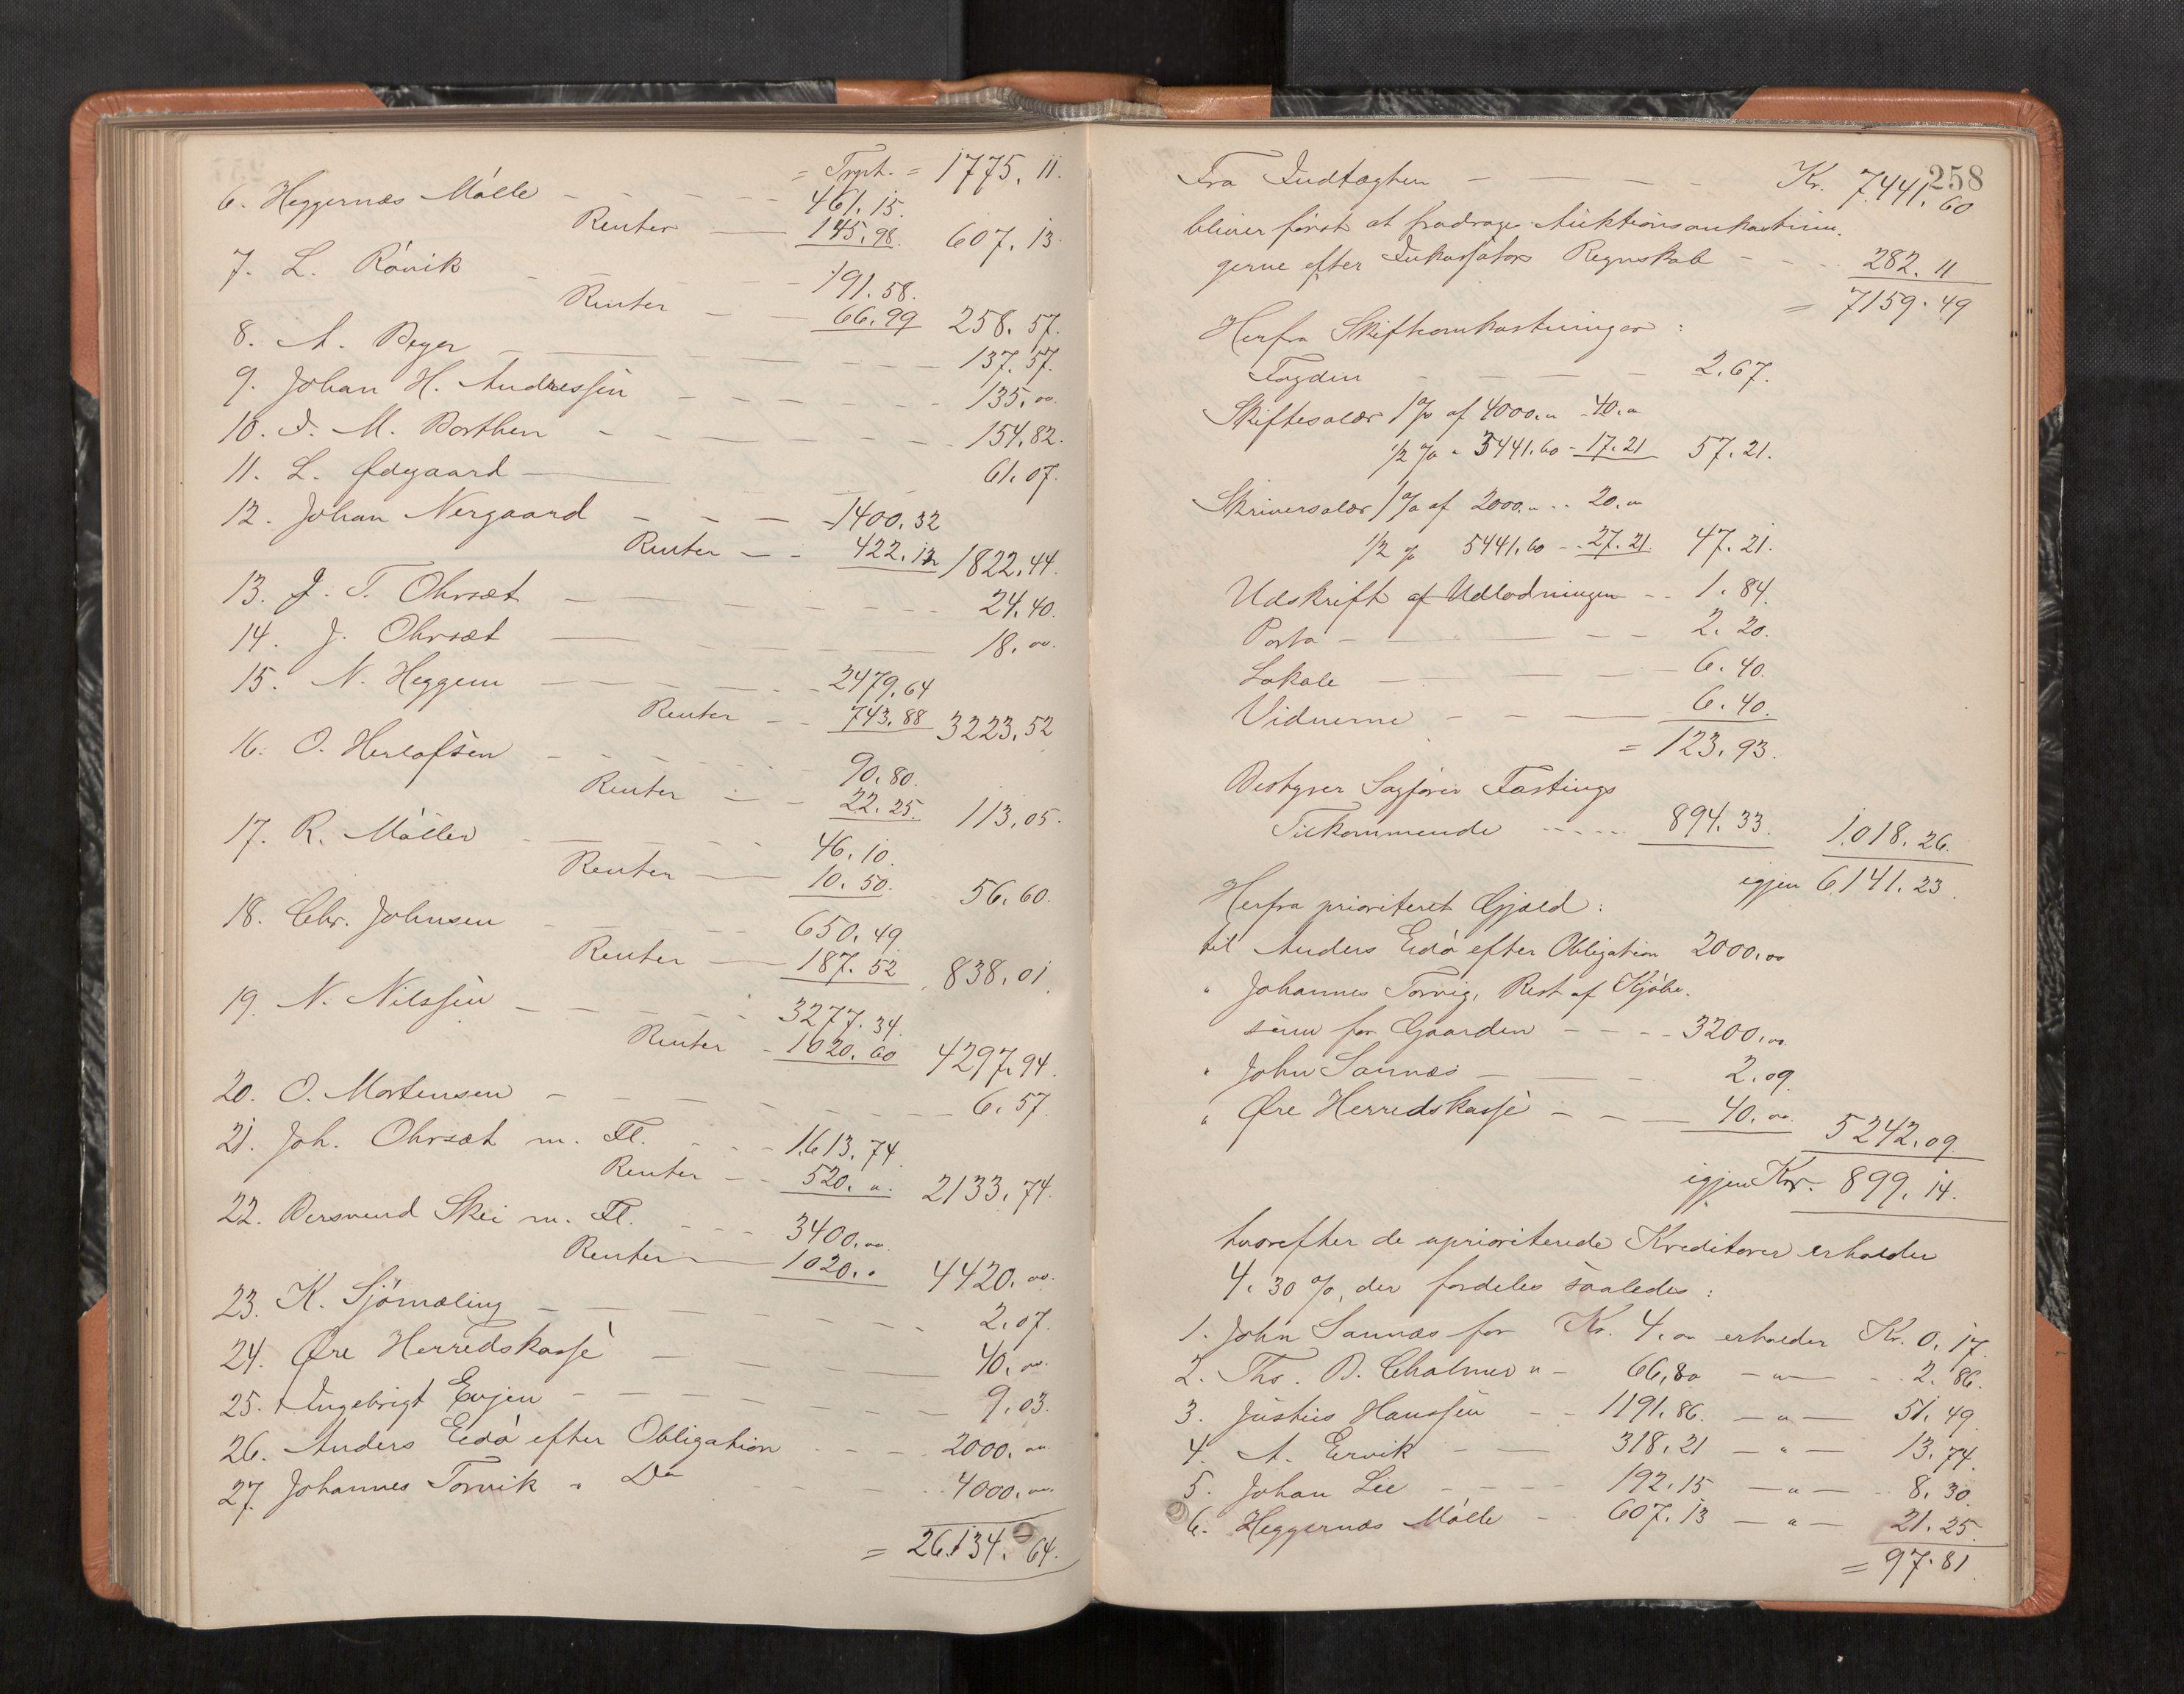 = Trpt. = 1775. 11.
6. Heggernæs Mølle - - - - 461. 15.
Renter — 145. 98. 607. 13.
7. L. Røvik - - - - 191. 58.
Renter - - 66. 99 258. 57.
8. A. Beyer - - - - 137. 57.
9. Johan H. Andressen - - - - 135. 00.
10. J. M. Borthen - - - - 154. 82.
11. L. Ødegaard - - - 61. 07.
12. Johan Nergaard - - - 1400. 32
Renter - - 422. 12 1822. 44.
13. J. T. Ohrsæt - - - - 24. 40.
14. J. Ohrsæt - - - - 18. 00.
15. N. Heggem - - - - 2479. 64
Renter - - 743. 88 3223. 52
16. O. Herlofsen - - - - 90. 80.
Renter - - 22. 25. 113. 05.
17. R. Møller - - - - 46. 10.
Renter — 10. 50. 56. 60.
18. Chr. Johnsen - - - - 650. 49.
Renter — 187. 52 838. 01.
19. N. Nilssen - - - - 3277. 34.
Renter - 1020. 60 4297. 94.
20. O. Mortensen - - - - 6. 57.
21. Joh. Ohrsæt m. Fl. - - - 1613. 74.
Renter - - 520. „. 2133. 74.
22. Bersvend Skei m. Fl. - - - 3400. 00
Renter — 1020. „ 4420. 00.
23. K. Sjømæling - - - - 2. 07.
24. Øre Herredskasse - - - - 40. 00.
25. Ingebrigt Evjen - - - - 9. 03.
26. Anders Eidø efter Obligation - - - 2000. 00
27. Johannes Torvik „ Do - - - 4000. 00.
= 26134. 64.
258
Fra Indtægten - - - - Kr. 7441. 60
bliver først at fradrage Auktionsomkostnin-
gerne efter Inkassators Regnskab - - - 282. 11
= 7159. 49
Herfra Skifteomkostninger:
Fogden - - - - 2. 67.
Skiftesalær 1 % af 4000. „ - 40. „
1/2 % „ 3441. 60 - 17. 21 57. 21.
Skriversalær 1 % af 2000. „ - - 20. „
1/2 % 5441. 60 - - 27. 21. 47. 21.
Udskrift af Udlodningen - - 1. 84.
Porto - - - - 2. 20.
Lokale - - - - 6. 40.
Vidnerne - - - 6. 40.
= 123. 93.
Bestyrer Sagfører Fastings
Tilkommende - - - - 894. 33. 1018. 26.
igjen 6141. 23.
Herfra prioriteret Gjæld:
til Anders Eidø efter Obligation 2000. 00
„ Johannes Torvig, Rest af Kjøbe-
sum for Gaarden - - - - 3200. 00.
„ John Sannæs - - - 2. 09.
„ Øre Herredskasse - - - 40. 00. 5242. 09.
igjen Kr. 899. 14.
hvorefter de uprioriterede Kreditorer erholder
4. 30 %, der fordeles saaledes:
1. John Sannæs for Kr. 4. 00 erholder Kr. 0. 17.
2. Ths. B. Chalmer „ - 66. 80 - „ - - - 2. 86.
3. Justus Hanssen - - 1191. 86. - „ - 51. 49.
4. A. Ervik - - 318. 21 - „ - 13. 74.
5. Johan Lie - - - - 192. 15 - „ - 8. 30.
6. Heggernæs Mølle - - 607. 13 - „ - 21. 25.
= 97. 81.